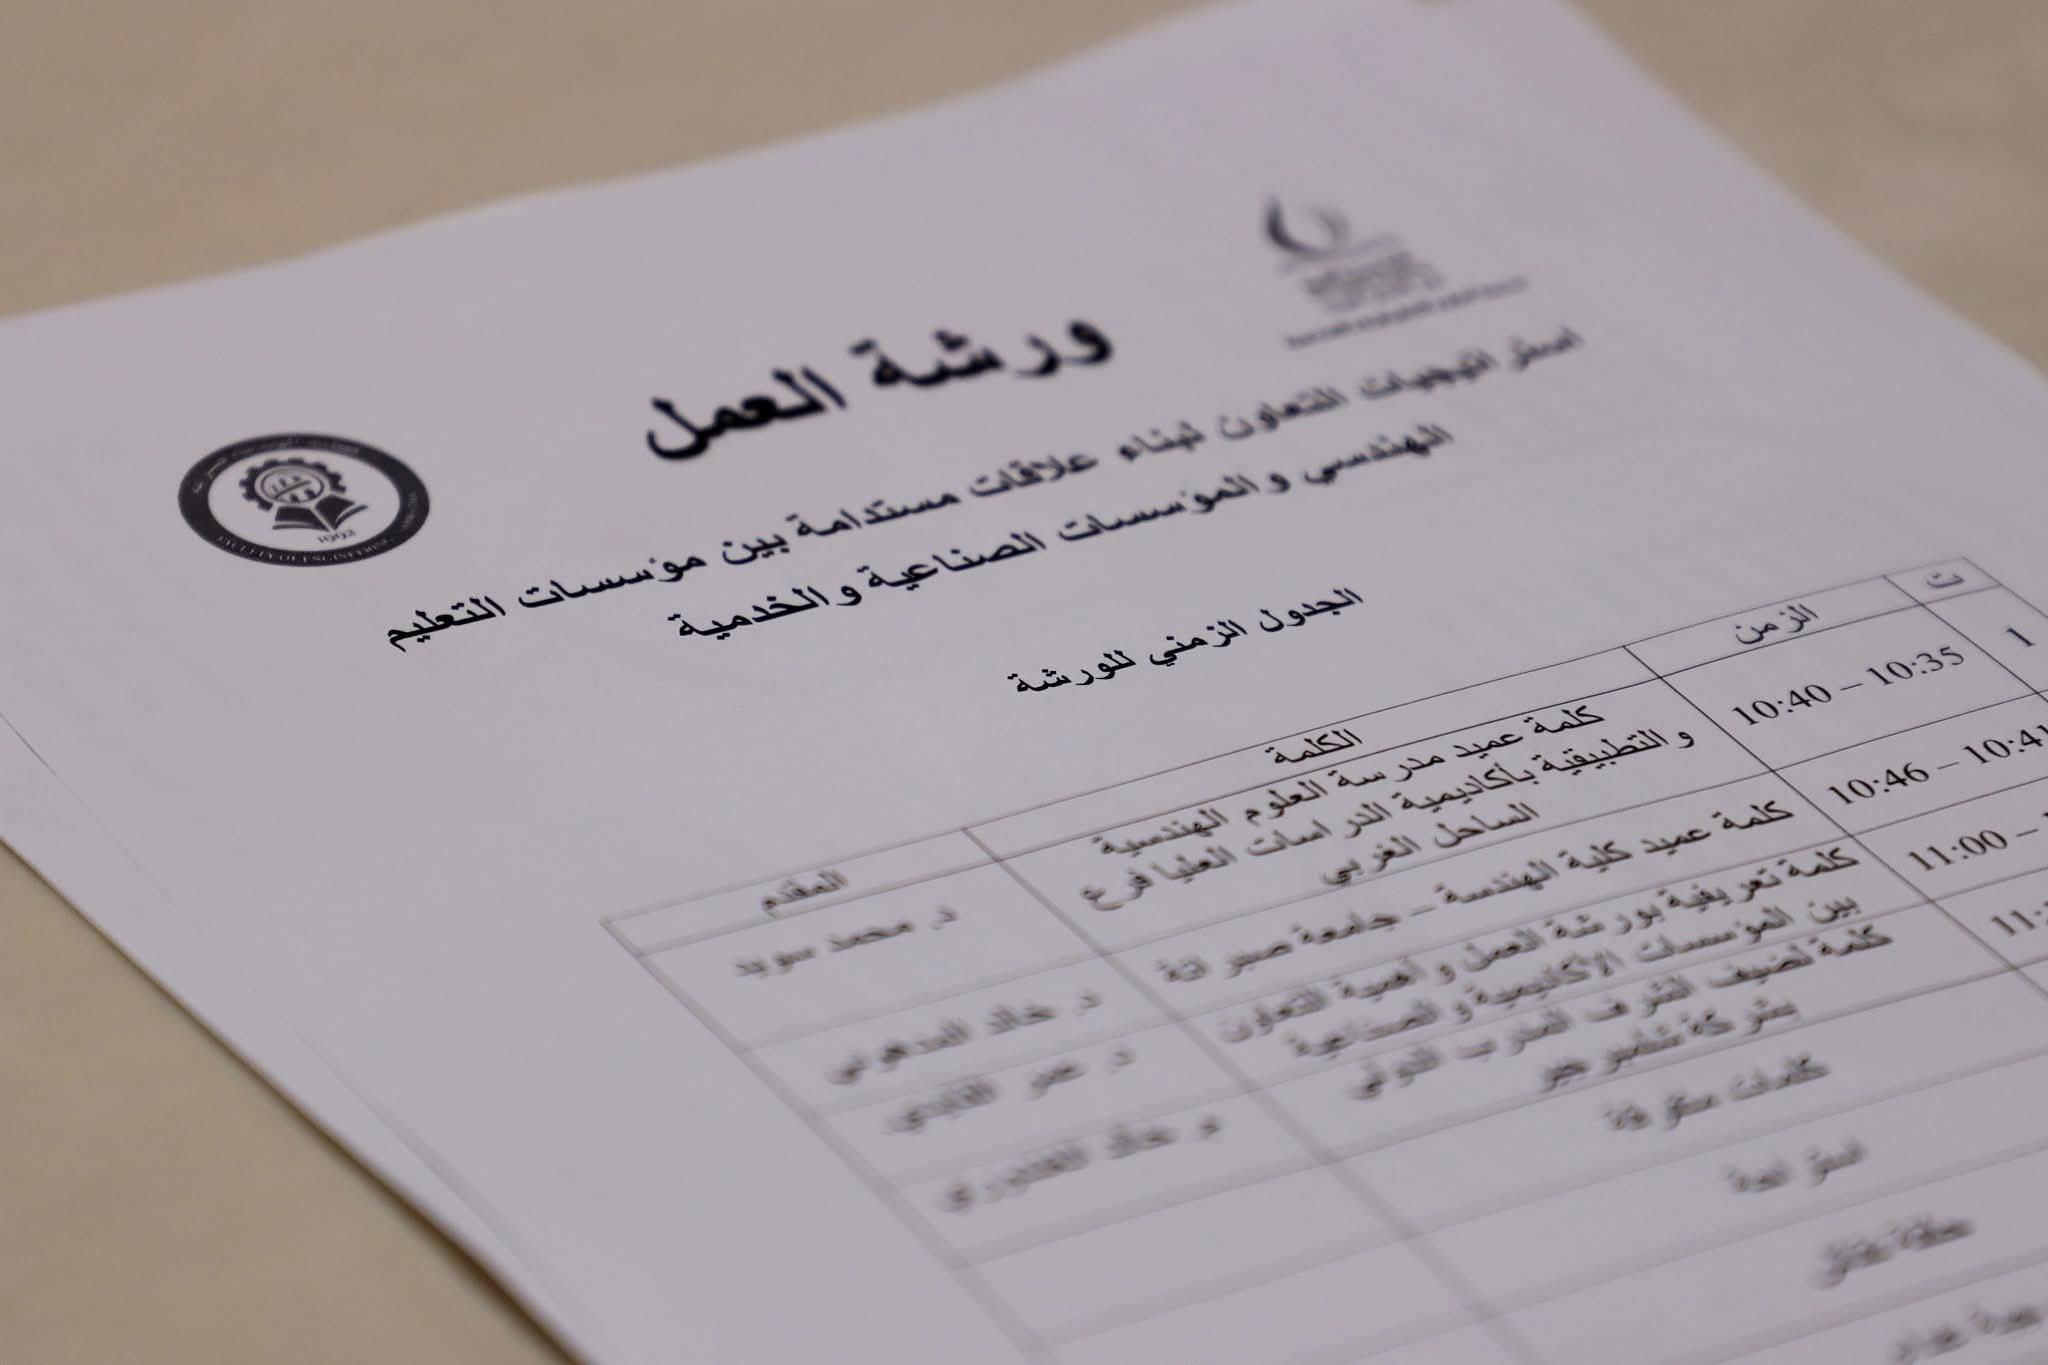 ورشة العمل
استراتيجيات التعاون لبناء علاقات مستدامة بين مؤسسات التعليم
الهندسي والمؤسسات الصناعية والخدمية
الجدول الزمني للورشة
1992
FACULTY OF ENGINEERING
ت الزمن الكلمة المقدم
1 10:35 – 10:40 كلمة عميد مدرسة العلوم الهندسية
والتطبيقية بأكاديمية الدراسات العليا فرع
الساحل الغربي
د. محمد سويد
10:41 – 10:46 كلمة عميد كلية الهندسة – جامعة صبراتة
د. خالد
– 11:00 كلمة تعريفية بورشة العمل وأهمية التعاون
بين المؤسسات الأكاديمية والصناعية
د. عمر
كلمة لضيف الشرف المدرب الدولي
بشركة شلمبرجير
م. خالد
كلمات متفرقة
استراحة
حلقة نقاش